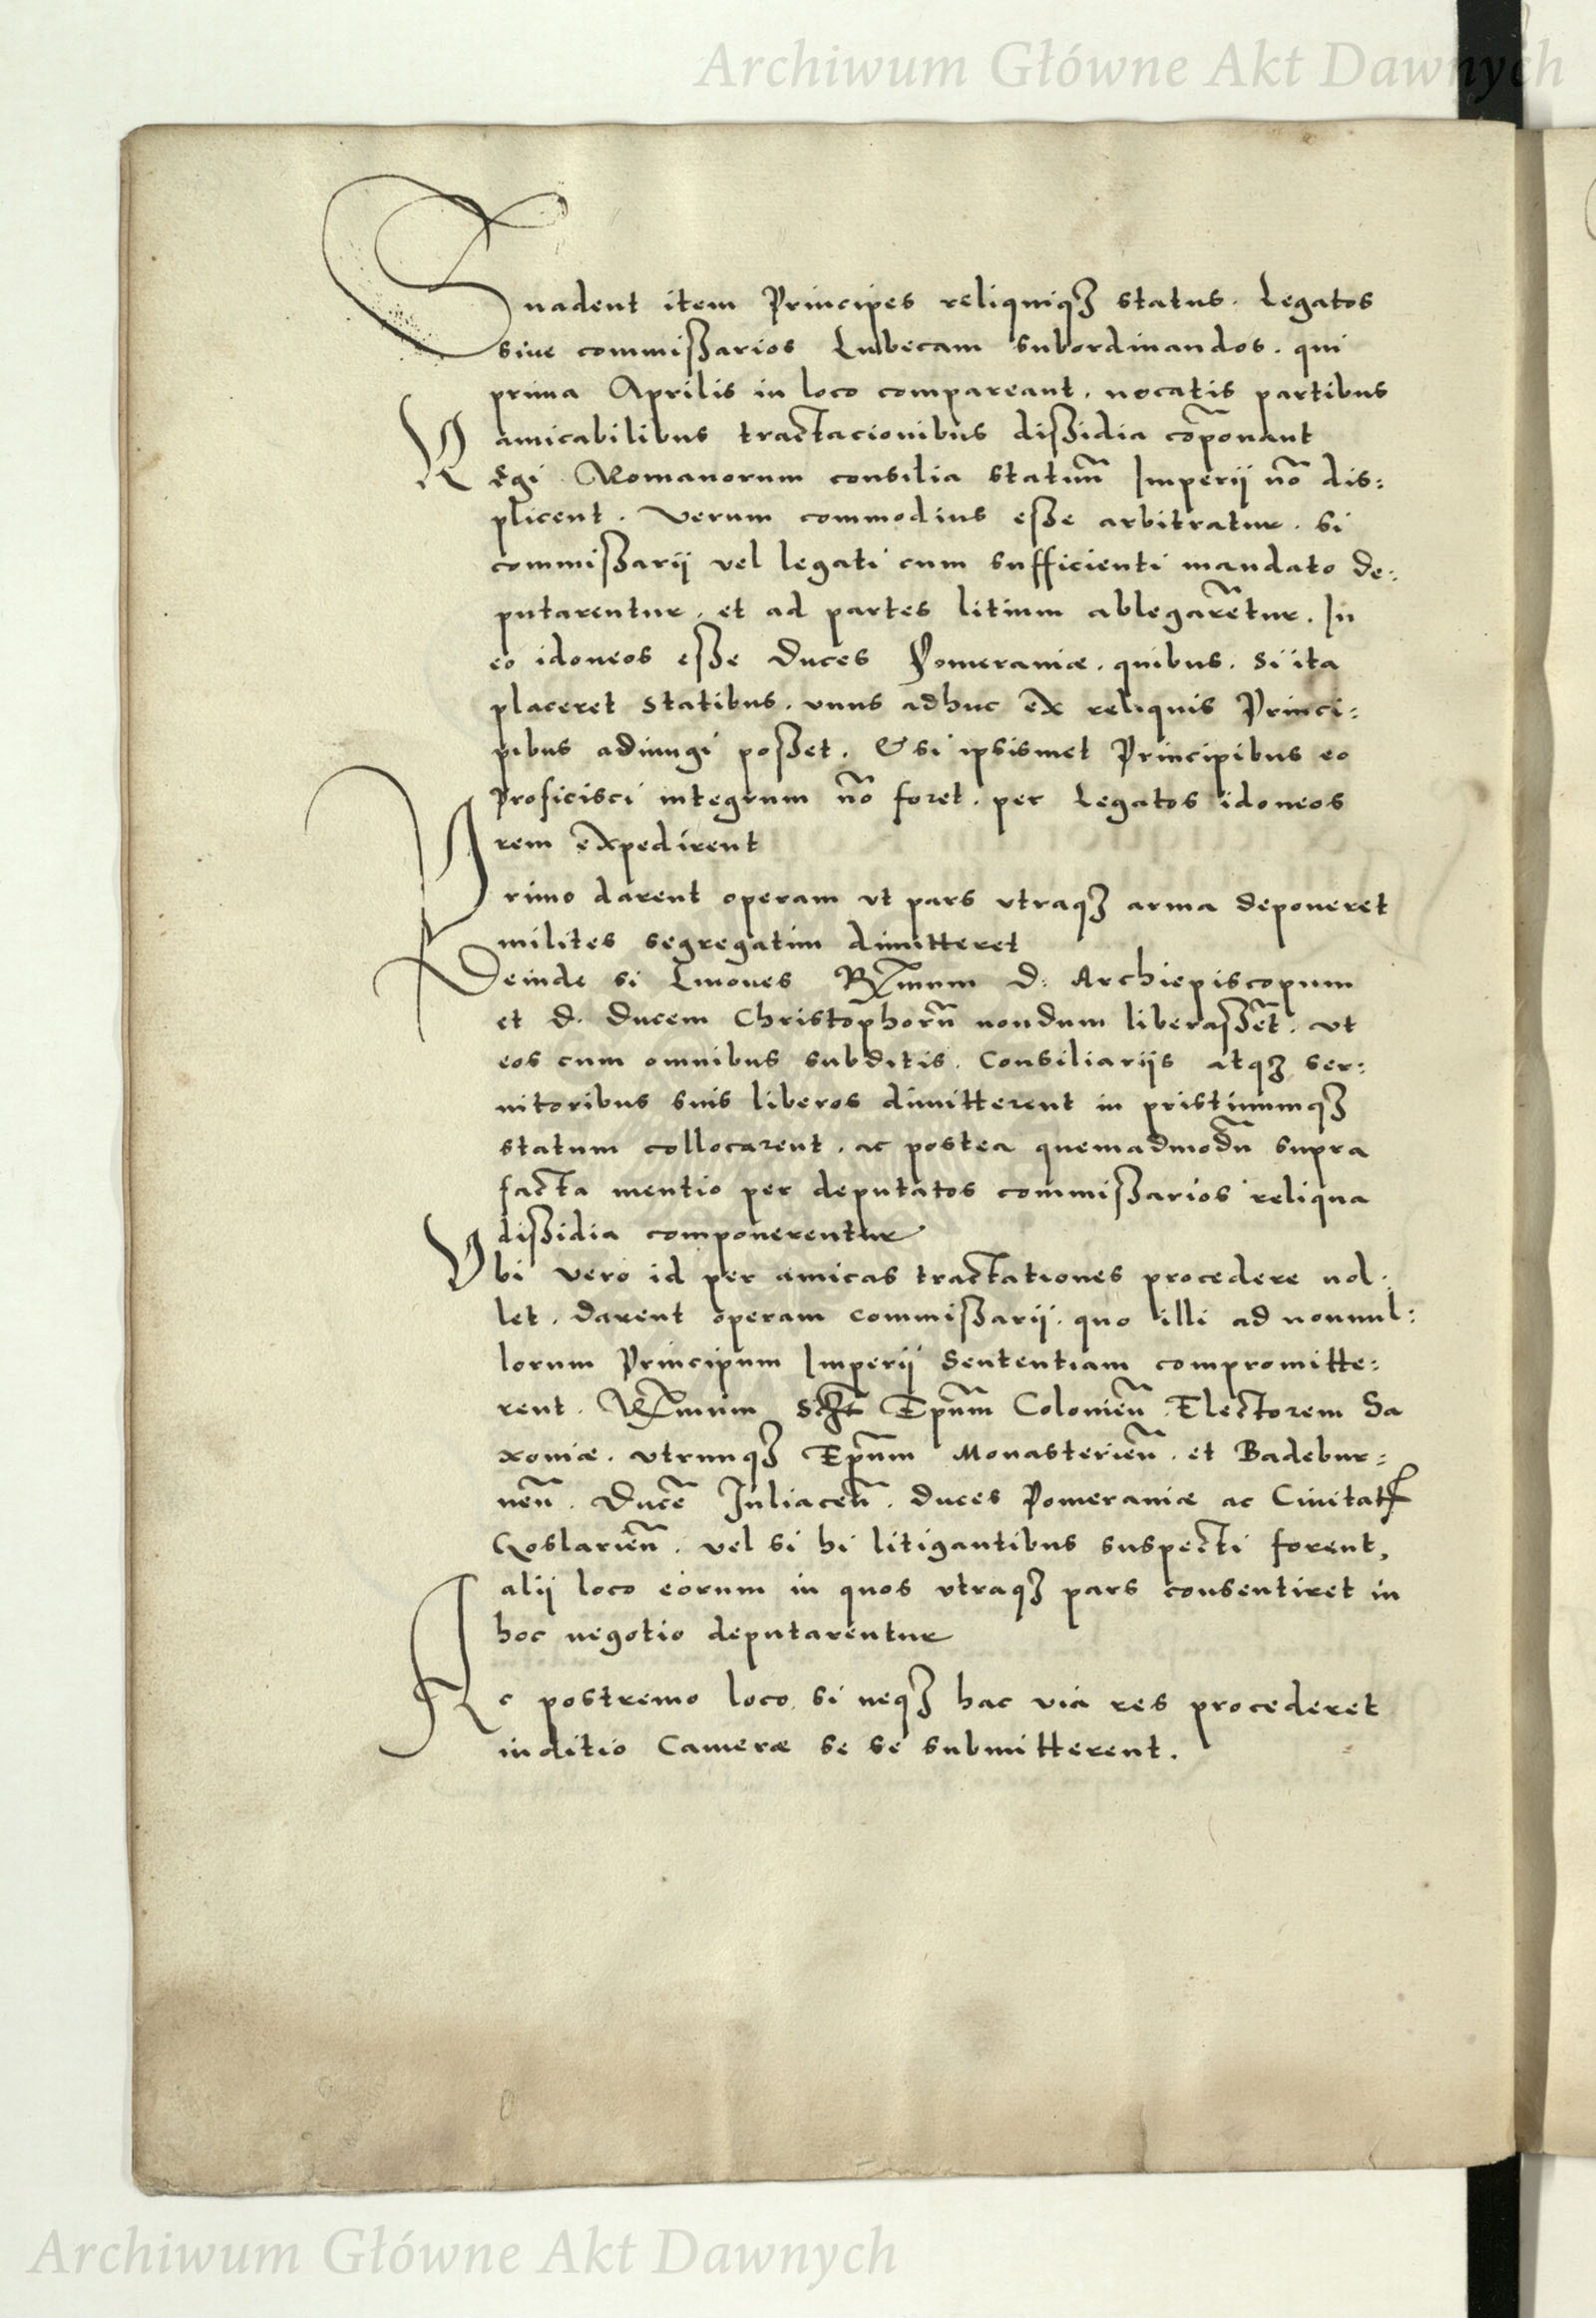 Archiwum Główne Akt Dawnych
Suadent item Principes reliquiqꝫ status. Legatos
siue commißarios Lubecam subordinandos. qui
prima Aprilis in loco compareant. uocatis partibus
amicabilibus tractacionibus dißidia cõponant
Regi Romanorum consilia statuũ Imperij nõ dis:
plicent. Verum commodius eße arbitratur. si
commißarij vel legati cum sufficienti mandato de:
putarentur. et ad partes litium ablegarẽtur. In
eo idoneos eße Duces Pomeraniæ. quibus. si ita
placeret Statibus. vnus adhuc ex reliquis Princi:
pibus adiungi poßet. & si ipsismet Principibus eo
proficisci integrum nõ foret. per Legatos idoneos
rem expedirent
Primo darent operam vt pars vtraqꝫ arma deponeret
milites segregatim dimitteret
Deinde si Liuones Rx̃mum D: Archiepiscopum
et D. Ducem Christophorũ nondum liberaßẽt. vt
eos cum omnibus subditis. Consiliarijs atqꝫ ser:
uitoribus suis liberos dimitterent in pristinumqꝫ
statum collocarent. ac postea quemadmodũ supra
facta mentio per deputatos commißarios reliqua
dißidia componerentur
Vbi vero id per amicas tractationes procedere nol:
let. Darent operam commißarij. quo illi ad nonnul:
lorum Principum Imperij Sententiam compromitte:
rent. Rx̃mum Epũm Colonieñ. Electorem Sa
xoniæ. vtrunqꝫ Epũm Monasterieñ. et Badebur:
neñ. Ducẽ Juliaceñ. Duces Pomeraniæ ac Ciuitatꝭ
Goslarieñ. vel si hi litigantibus suspecti forent,
alij loco eorum in quos vtraqꝫ pars consentiret in
hoc negotio deputarentur
Ac postremo loco. si neqꝫ hac via res procederet
iuditio Cameræ se se submitterent.
Archiwum Główne Akt Dawnych